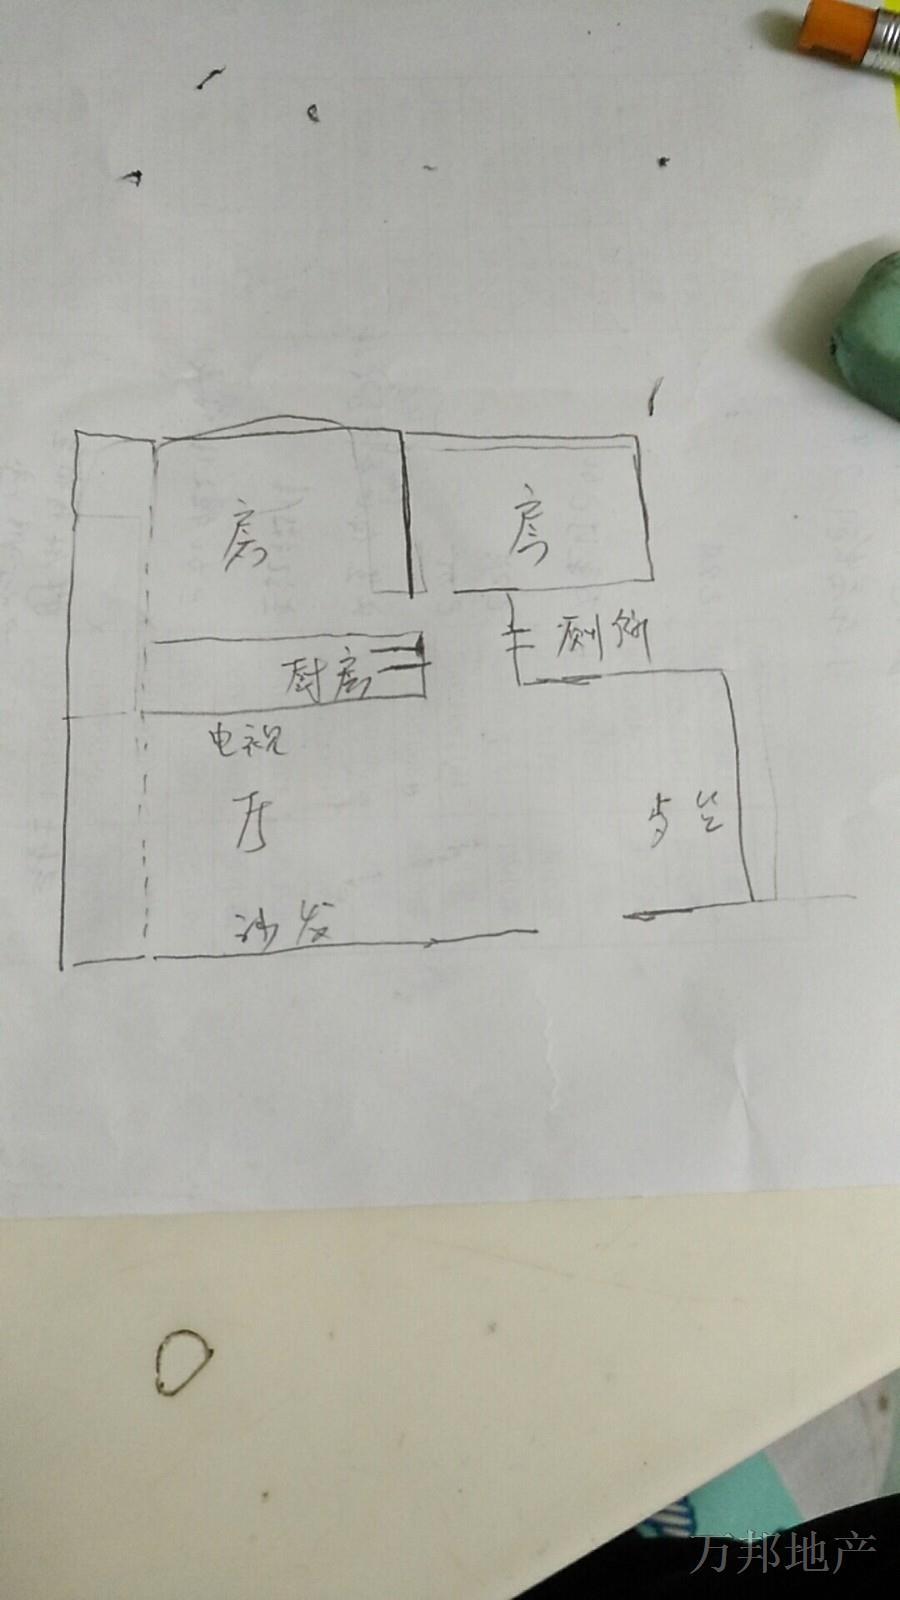 房
房
厕所
厨房
电视
厅
沙发
万邦地产